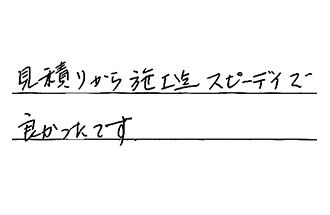 見積りから施工迄スピーディで
良かったです